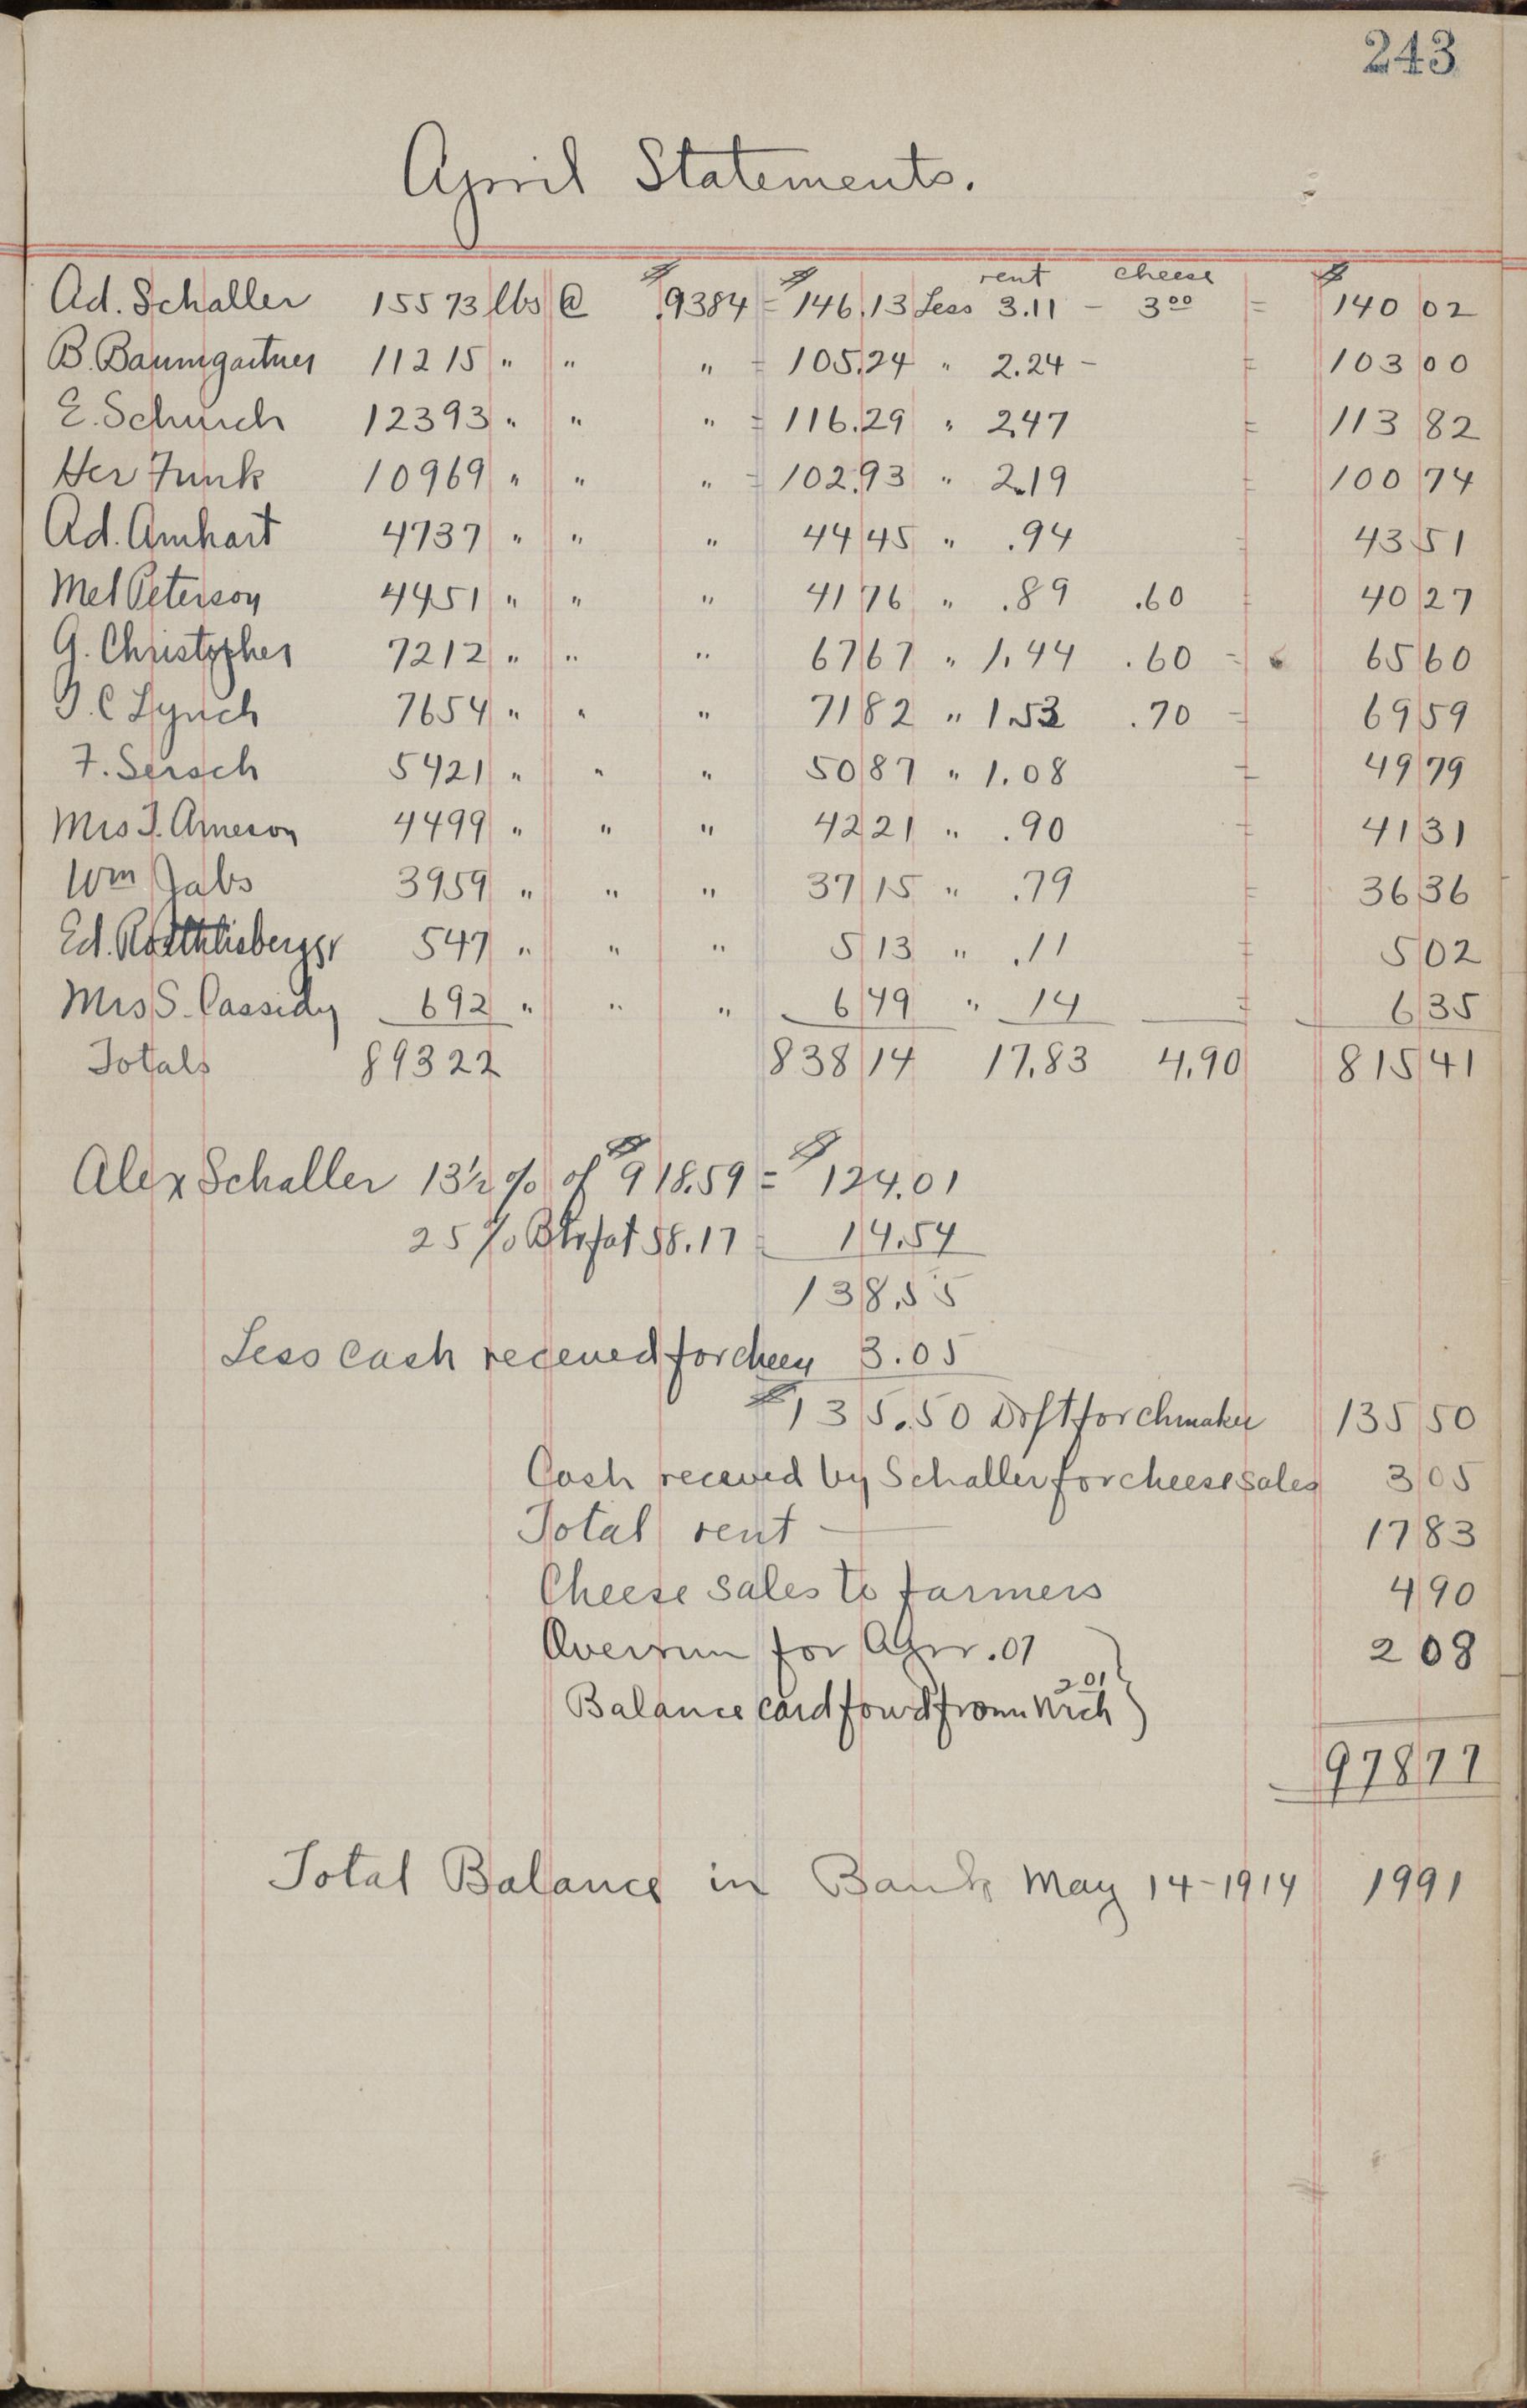 243
April Statements.
$ $ rent cheese $
Ad. Schaller 15573 lbs @ .9384 = 146.13 Less 3.11 - 3 00 = 140 02
B. Baumgartner 11215 " " " = 105.24 " 2.24 - = 103 00
E. Schurch 12393 " " " = 116.29 " 2.47 = 113 82
Her Funk 10969 " " " = 102.93 " 2.19 = 100 74
Ad. Amhart 4737 " " " 44 45 " .94 = 43 51
Mel Peterson 4451 " " " 41 76 " .89 .60 = 40 27
G. Christopher 7212 " " " 67 67 " 1.44 .60 = 65 60
J. C Lynch 7654 " " " 71 82 " 1.53 .70 = 69 59
F. Sersch 5421 " " " 50 87 " 1.08 = 49 79
Mrs T. Arneson 4499 " " " 42 21 " .90 = 41 31
Wm Jabs 3959 " " " 37 15 " .79 = 36 36
Ed. Roethlisberger 547 " " " 5 13 " .11 = 5 02
Mrs S. Cassidy 692 " " " 6 49 " 14 = 6 35
Totals 89322 838 14 17.83 4.90 815 41
Alex Schaller 13 1/2 % of $918.59 = $124.01
25 % Btrfat 58.17 = 14.54
138.55
Less cash receved for chees 3.05
$135.50 Drft for chmaker 135 50
Cash receved by Schaller for cheese sales 3 05
Total rent — 17 83
Cheese sales to farmers 4 90
Overrun for Apr. .07 2 08
201
Balance card forwd from Mrch }
978 77
Total Balance in Bank May 14-1914 19 91